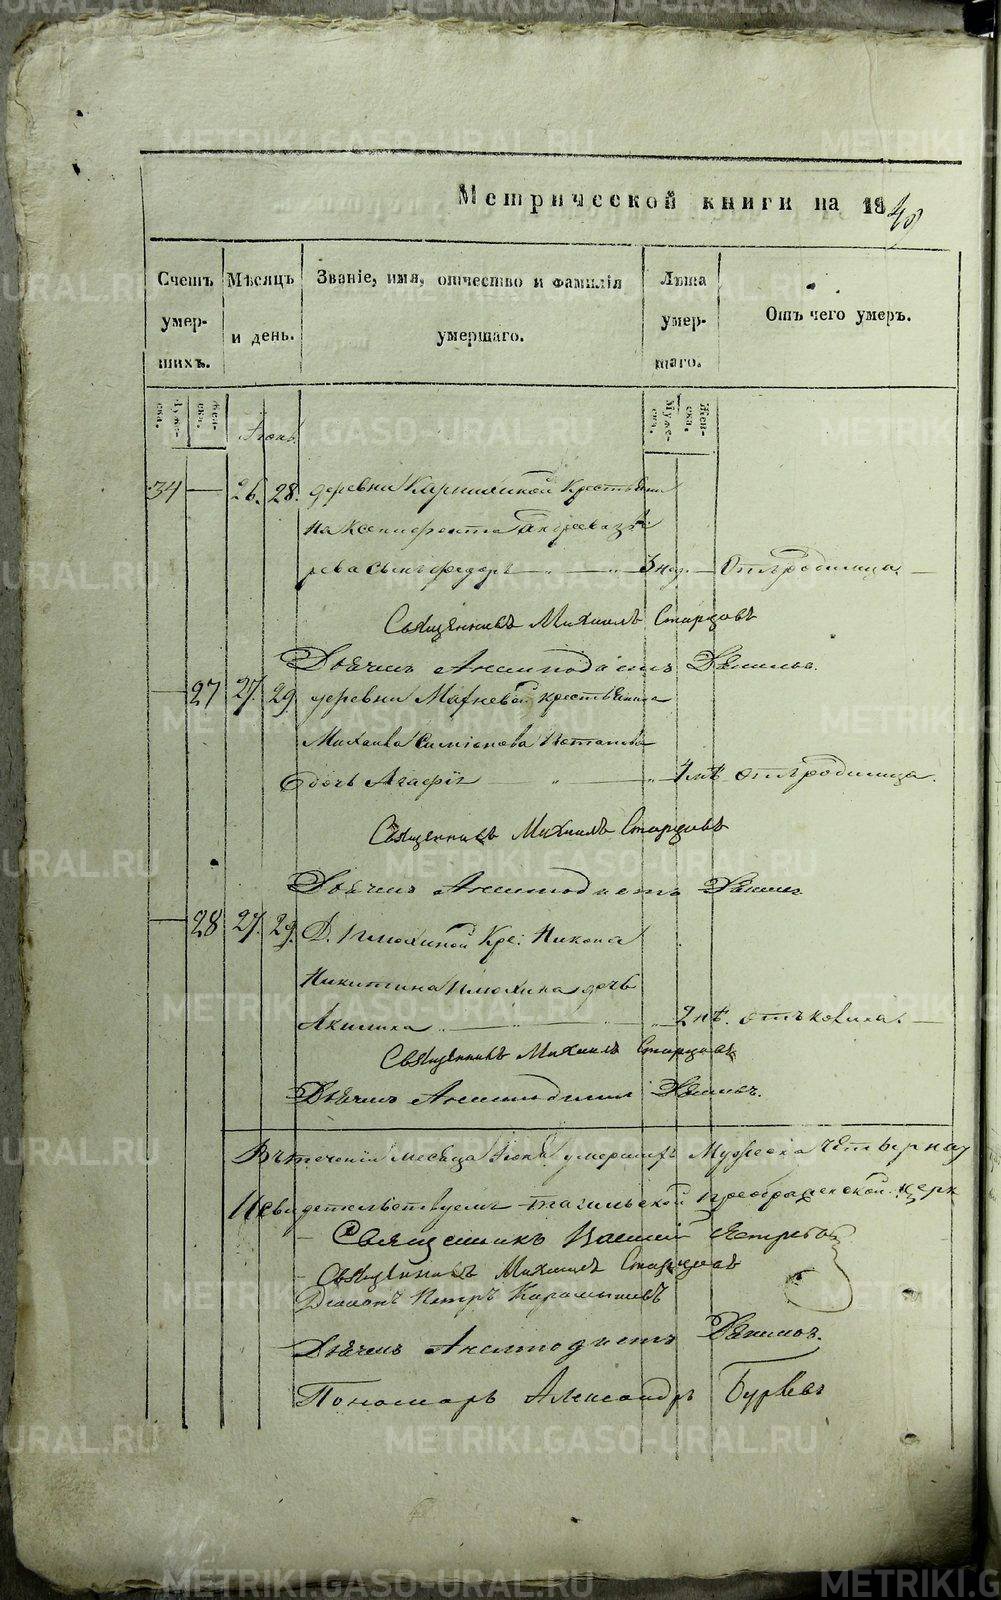 Метрической книги на 1840
Счетъ умер-шихъ.
Мѣсяцъ и день.
Званіе, имя, отчество и фамилія умершаго.
Лѣта умер-шаго.
Отъ чего умеръ.
Муже-ска.
Жен-ска.
Муже-ска.
Жен-ска.
Іюнь
34 — 26. 28. деревни Карпушиной Крестьяни
на Ксенофонта Андреева
рева сынъ Федоръ — 3 нед. — Отъ родимца —
Священникъ Михаилъ Старцовъ
Дьячекъ Анемподистъ
— 27 27. 29. деревни Матневой крестьянина
Михаила Симіонова Потапова
дочь Агафія — 1 лѣ. отъ родимца.
Священникъ Михаилъ Старцовъ
Дьячекъ Анемподистъ
— 28 27. 29. Д. Илюхиной Кре: Никона
Никитина Илюхина дочь
Акилина — 2 лѣ. отъ —
Священникъ Михаилъ Старцовъ
Дьячекъ Анемподистъ
Въ теченіи месяца Іюня умершихъ Мужеска четырна
И свидетельствуемъ тагильской преображенской церк
Священникъ
Священникъ Михаилъ Старцовъ
Діаконъ Петръ Карамышевъ
Дьячекъ Анемподистъ
Пономарь Александръ
METRIKI.GASO-URAL.RU